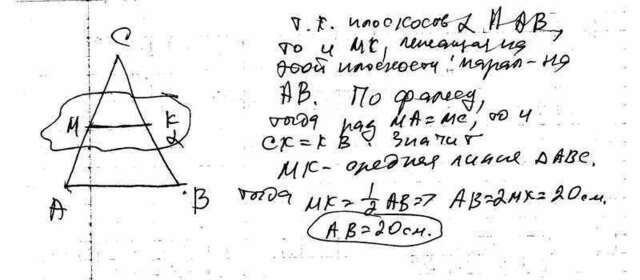 C
M
K
α
A
B
т.к. плоскость α || AB,
то и MK, лежащая на
этой плоскости парал-на
AB. По фалесу,
тогда раз MA=MC, то и
CK=KB. Значит
MK- средняя линия ΔABC.
тогда MK=1/2 AB => AB=2MK=20см.
AB=20см.